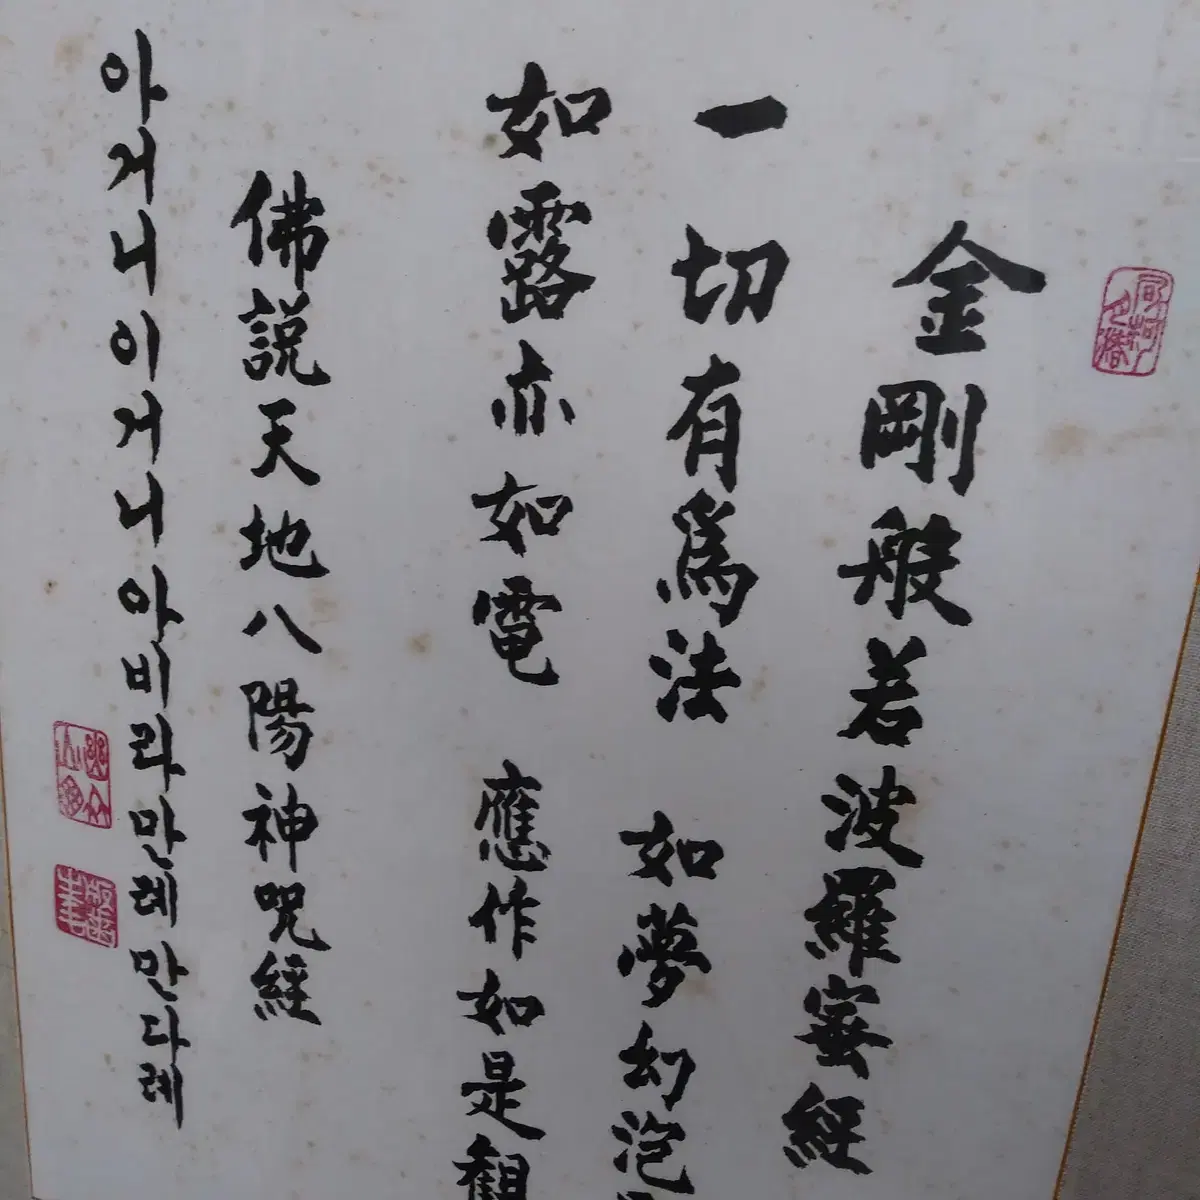 金剛般若波羅蜜經
一切有爲法 如夢幻泡
如露亦如電 應作如是觀
佛說天地八陽神呪經
아거니이거니아비라만례만다례